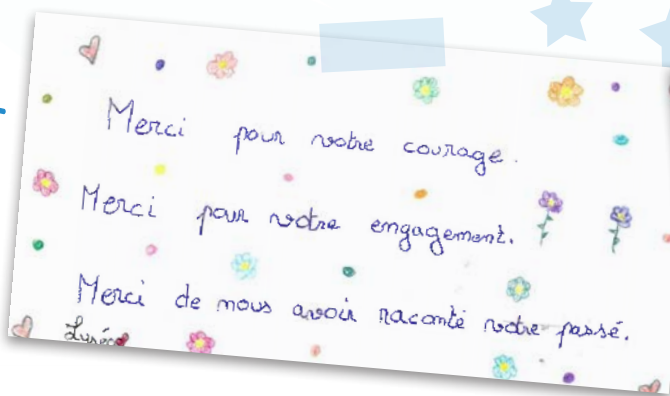 Merci pour votre courage.
Merci pour votre engagement.
Merci de nous avoir raconté votre passé.